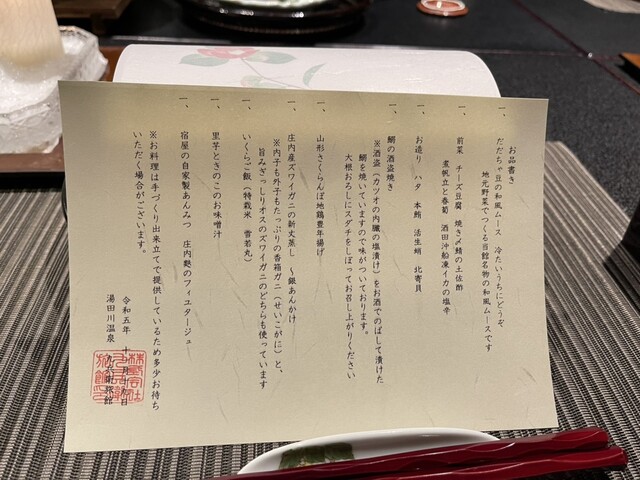 お品書き
一、だだちゃ豆の和風ムース 冷たいうちにどうぞ
地元野菜でつくる当館名物の和風ムースです
一、前菜 チーズ豆腐 焼き〆鯖の土佐酢
煮帆立と春菊 酒田沖船凍イカの塩辛
一、お造り ハタ 本鮪 活生蛸 北寄貝
一、鯛の酒盗焼き
※酒盗(カツオの内臓の塩漬け)をお酒でのばして漬けた
鯛を焼いていますので味がついております。
大根おろしにスダチをしぼってお召し上がりください
一、山形さくらんぼ地鶏豊年揚げ
一、庄内産ズワイガニの新丈蒸し ~銀あんかけ
※内子も外子もたっぷりの香箱ガニ(せいこがに)と、
旨みぎっしりオスのズワイガニのどちらも使っています
一、いくらご飯(特栽米 雪若丸)
一、里芋ときのこのお味噌汁
一、宿屋の自家製あんみつ 庄内麩のフィユタージュ
※お料理は手づくり出来立てで提供しているため多少お待ち
いただく場合がございます。
令和五年 十
湯田川温泉